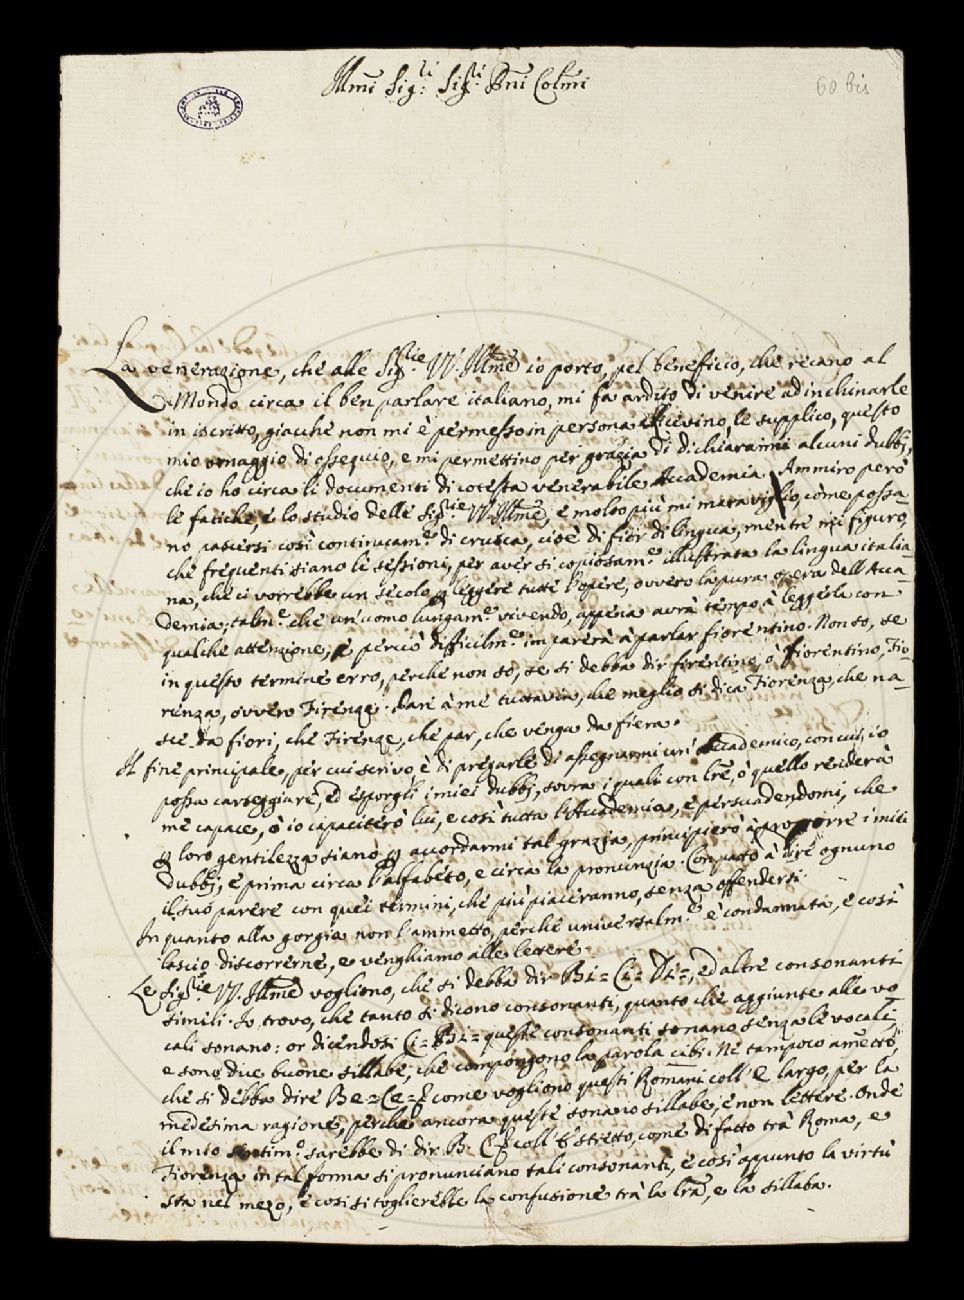 Ill.mi Sig.ri Sig.ri P̃ni Col.mi
60 bis
La venerazione, che alle Sig.rie VV. Ill.me io porto, pel beneficio, che recano al
Mondo circa il ben parlare italiano, mi fà ardito di venire ad inchinarle
in iscritto, giacchè non mi è permesso in persona. Ricevino, le supplico, questo
mio omaggio di ossequio, e mi permettino per grazia di dichiararmi alcuni dubbj,
che io ho circa li documenti di cotesta venerabile Accademia. Ammiro però
le fatiche, e lo studio delle Sig.rie VV. Ill.me, e molto più mi maraviglio, còme possa-
no pascersi così continuam.e di crusca, cioè di fior di lingua, mentre mi figuro,
che frequenti siano le sessioni, per aver sì copiosam.e illustrata la lingua italia-
na, che ci vorrebbe un secolo p leggere tutte l'opere, ovvero la pura opera dell'Acca-
demia; talm.e che un'uomo lungam.e vivendo, appena avrà tempo à leggerla con
qualche attenzione; e perciò difficilm.e imparerà à parlar fiorentino. Non so, se
in questo termine erro, perche non sò, se si debba dir firentino, ò fiorentino, Fio-
renza, ovvero Firenze. Pare à me tuttavia, che meglio si dica Fiorenza, che na-
sce da fiori, che Firenze, che par, che venga da fiera.
Il fine principale, per cui scrivo, è di pregarle di assegnarmi un'Accademico, con cui io
possa carteggiare, ed esporgli i miei dubbj, sovra i quali con lr̃e, ò quello renderà
me capace, ò io capaciterò lui, e così tutta l'Accademia, e persuadendomi, che
p loro gentilezza siano p accordarmi tal grazia, principierò à proporre i miei
dubbj; e prima circa l'alfabeto, e circa la pronunzia. Con patto à dire ognuno
il suo parere con quei termini, che più piaceranno, senza offendersi.
In quanto alla gorgia non l'ammetto, perche universalm.e è condannata, e così
lascio discorrerne, e venghiamo alle lettere.
Le Sig.rie VV. Ill.me vogliono, che si debba dir Bi = Ci = Di =, ed altre consonanti
simili. Io trovo, che tanto si dicono consonanti, quanto che aggiunte alle vo-
cali sonano: or dicendosi Ci = Bi = queste consonanti sonano senza le vocali,
e sono due buone sillabe, che compongono la parola cibi. Ne tampoco ametto,
che si debba dire Be = Ce = come vogliono questi Romani coll'E largo, per la
medesima ragione, perche ancora queste sonano sillabe, e non lettere. Onde
il mio sentim.o sarebbe di dir B. C. coll'E stretto, come di fatto trà Roma, e
Fiorenza in tal forma si pronunciano tali consonanti, e così appunto la virtù
sta nel mezo, e così si toglierebbe la confusione trà la lr̃a, e la sillaba.